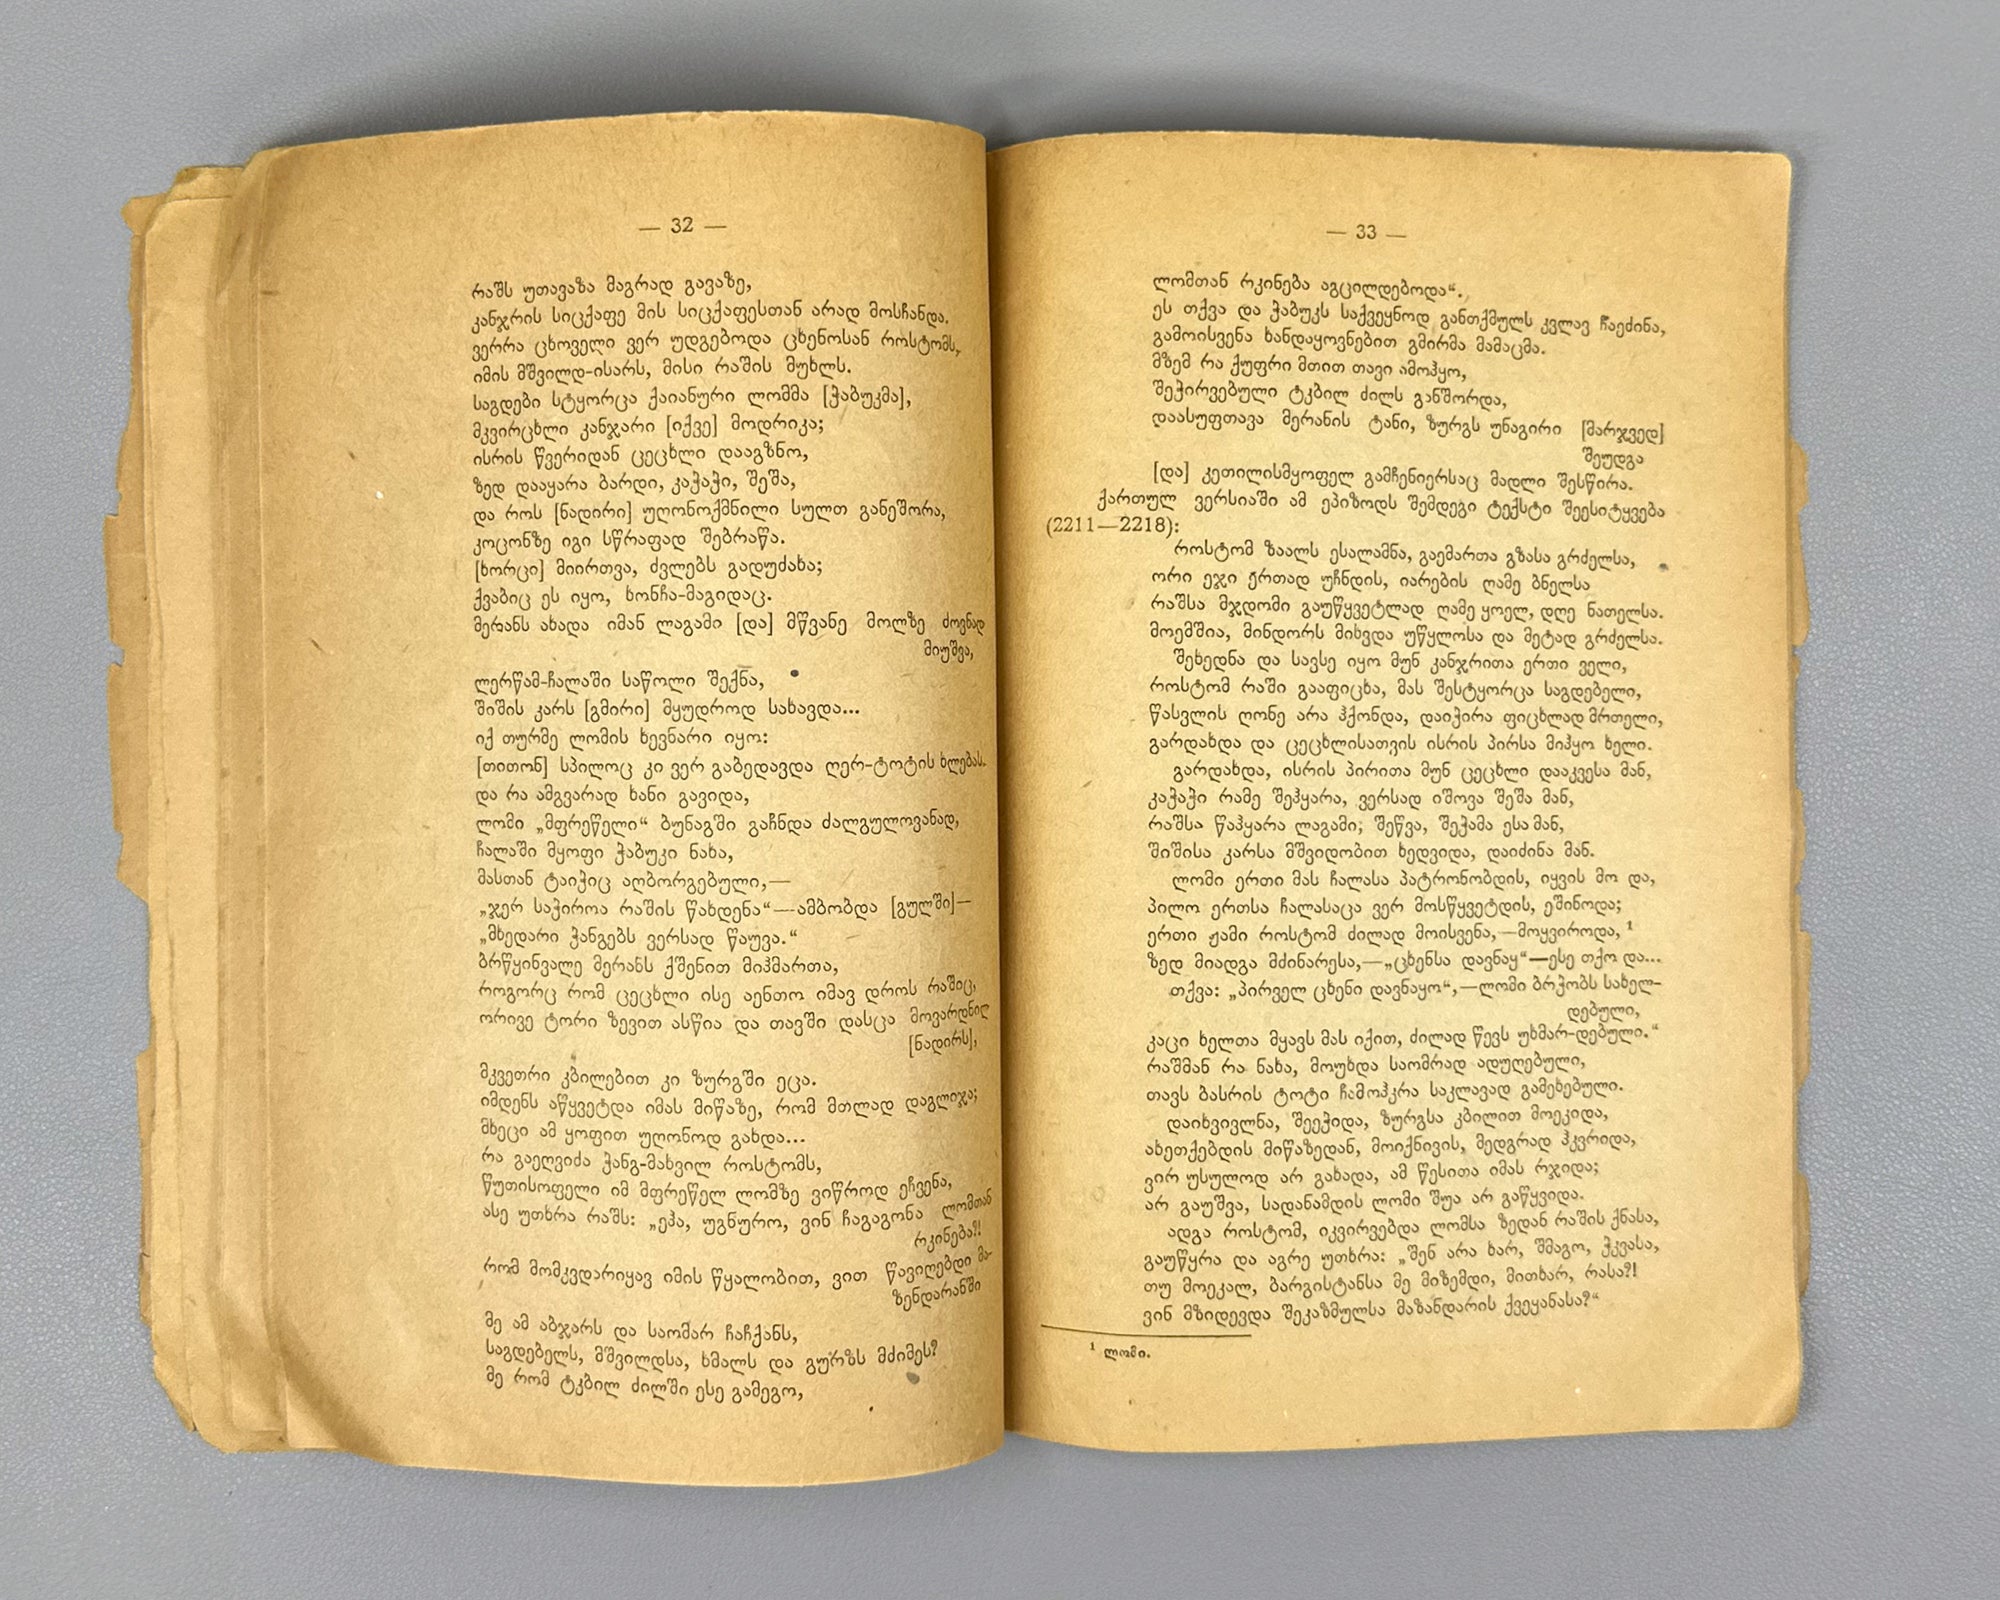 — 32 —
რაშს უთავაზა მაგრად გავაზე,
კანჯრის სიცქაფე მის სიცქაფესთან არად მოსჩანდა.
ვერრა ცხოველი ვერ უდგებოდა ცხენოსან როსტომს,
იმის მშვილდ-ისარს, მისი რაშის მუხლს.
საგდები სტყორცა ქაიანური ლომმა [ჭაბუკმა],
მკვირცხლი კანჯარი [იქვე] მოდრიკა;
ისრის წვერიდან ცეცხლი დააგზნო,
ზედ დააყარა ბარდი, კაჭაჭი, შეშა,
და როს [ნადირი] უღონოქმნილი სულთ განეშორა,
კოცონზე იგი სწრაფად შებრაწა.
[ხორცი] მიირთვა, ძვლებს გადუძახა;
ქვაბიც ეს იყო, ხონჩა-მაგიდაც.
მერანს ახადა იმან ლაგამი [და] მწვანე მოლზე ძოვნად
მიუშვა,
ლერწამ-ჩალაში საწოლი შექნა,
შიშის კარს [გმირი] მყუდროდ სახავდა...
იქ თურმე ლომის ხევნარი იყო:
[თითონ] სპილოც კი ვერ გაბედავდა ღერ-ტოტის ხლებას.
და რა ამგვარად ხანი გავიდა,
ლომი „მფრეწელი“ ბუნაგში გაჩნდა ძალგულოვანად,
ჩალაში მყოფი ჭაბუკი ნახა,
მასთან ტაიჭიც აღბორგებული,—
„ჯერ საჭიროა რაშის წახდენა“—ამბობდა [გულში]—
„მხედარი ჭანგებს ვერსად წაუვა.“
ბრწყინვალე მერანს ქშენით მიჰმართა,
როგორც რომ ცეცხლი ისე აენთო იმავ დროს რაშიც,
ორივე ტორი ზევით ასწია და თავში დასცა მოვარდნილ
[ნადირს],
მკვეთრი კბილებით კი ზურგში ეცა.
იმდენს აწყვეტდა იმას მიწაზე, რომ მთლად დაგლიჯა;
მხეცი ამ ყოფით უღონოდ გახდა...
რა გაეღვიძა ჭანგ-მახვილ როსტომს,
წუთისოფელი იმ მფრეწელ ლომზე ვიწროდ ეჩვენა,
ასე უთხრა რაშს: „ეჰა, უგნურო, ვინ ჩაგაგონა ლომთან
რკინება?!
რომ მომკვდარიყავ იმის წყალობით, ვით წავიღებდი მა-
ზენდარანში
მე ამ აბჯარს და საომარ ჩაჩქანს,
საგდებელს, მშვილდსა, ხმალს და გურზს მძიმეს?
მე რომ ტკბილ ძილში ესე გამეგო,
— 33 —
ლომთან რკინება აგცილდებოდა“.
ეს თქვა და ჭაბუკს საქვეყნოდ განთქმულს კვლავ ჩაეძინა,
გამოისვენა ხანდაყოვნებით გმირმა მამაცმა.
მზემ რა ქუფრი მთით თავი ამოჰყო,
შეჭირვებული ტკბილ ძილს განშორდა,
დაასუფთავა მერანის ტანი, ზურგს უნაგირი [მარჯვედ]
შეუდგა
[და] კეთილისმყოფელ გამჩენიერსაც მადლი შესწირა.
ქართულ ვერსიაში ამ ეპიზოდს შემდეგი ტექსტი შეესიტყვება
(2211—2218):
როსტომ ზაალს ესალამნა, გაემართა გზასა გრძელსა,
ორი ეჯი ერთად უჩნდის, იარების ღამე ბნელსა
რაშსა მჯდომი გაუწყვეტლად ღამე ყოელ, დღე ნათელსა.
მოემშია, მინდორს მიხვდა უწყლოსა და მეტად გრძელსა.
შეხედნა და სავსე იყო მუნ კანჯრითა ერთი ველი,
როსტომ რაში გააფიცხა, მას შესტყორცა საგდებელი,
წასვლის ღონე არა ჰქონდა, დაიჭირა ფიცხლად მრთელი,
გარდახდა და ცეცხლისათვის ისრის პირსა მიჰყო ხელი.
გარდახდა, ისრის პირითა მუნ ცეცხლი დააკვესა მან,
კაჭაჭი რამე შეჰყარა, ვერსად იშოვა შეშა მან,
რაშსა წაჰყარა ლაგამი; შეწვა, შეჭამა ესა მან,
შიშისა კარსა მშვიდობით ხედვიდა, დაიძინა მან.
ლომი ერთი მას ჩალასა პატრონობდის, იყვის მო და,
პილო ერთსა ჩალასაცა ვერ მოსწყვეტდის, ეშინოდა;
ერთი ჟამი როსტომ ძილად მოისვენა,—მოყვიროდა,¹
ზედ მიადგა მძინარესა,—„ცხენსა დავნაყ“—ესე თქო და...
თქვა: „პირველ ცხენი დავნაყო“,—ლომი ბრჭობს სახელ-
დებული,
კაცი ხელთა მყავს მას იქით, ძილად წევს უხმარ-დებული.“
რაშმან რა ნახა, მოუხდა საომრად ადუღებული,
თავს ბასრის ტოტი ჩამოჰკრა საკლავად გამეხებული.
დაიხვივლნა, შეეჭიდა, ზურგსა კბილით მოეკიდა,
ახეთქებდის მიწაზედან, მოიქნივის, მედგრად ჰკვრიდა,
ვირ უსულოდ არ გახადა, ამ წესითა იმას რჯიდა;
არ გაუშვა, სადანამდის ლომი შუა არ გაწყვიდა.
ადგა როსტომ, იკვირვებდა ლომსა ზედან რაშის ქნასა,
გაუწყრა და აგრე უთხრა: „შენ არა ხარ, შმაგო, ჰკვასა,
თუ მოეკალ, ბარგისტანსა მე მიზემდი, მითხარ, რასა?!
ვინ მზიდევდა შეკაზმულსა მაზანდარის ქვეყანასა?“
¹ ლომი.